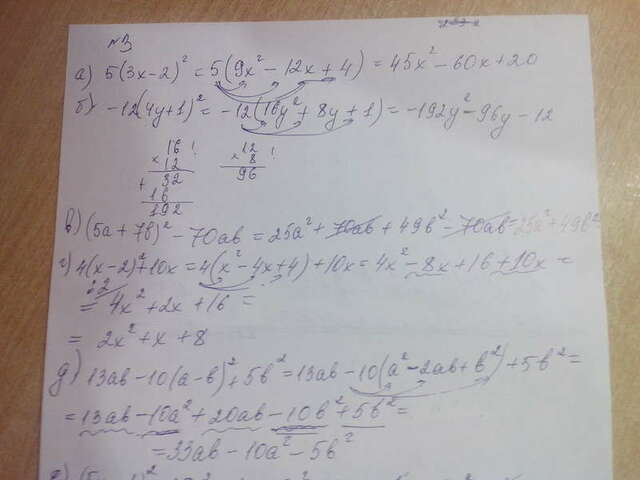 №3
а) 5(3x-2)² = 5(9x² - 12x + 4) = 45x² - 60x + 20
б) -12(4y+1)² = -12(16y² + 8y + 1) = -192y² - 96y - 12
16 ! 12 !
× 12 × 8
+ 32 96
16
192
в) (5a + 7b)² - 70ab = 25a² + 70ab + 49b² - 70ab = 25a² + 49b²
г) 4(x-2)² + 10x = 4(x² - 4x + 4) + 10x = 4x² - 8x + 16 + 10x =
= 4x² + 2x + 16 =
= 2x² + x + 8
д) 13ab - 10(a-b)² + 5b² = 13ab - 10(a² - 2ab + b²) + 5b² =
= 13ab - 10a² + 20ab - 10b² + 5b² =
= 33ab - 10a² - 5b²